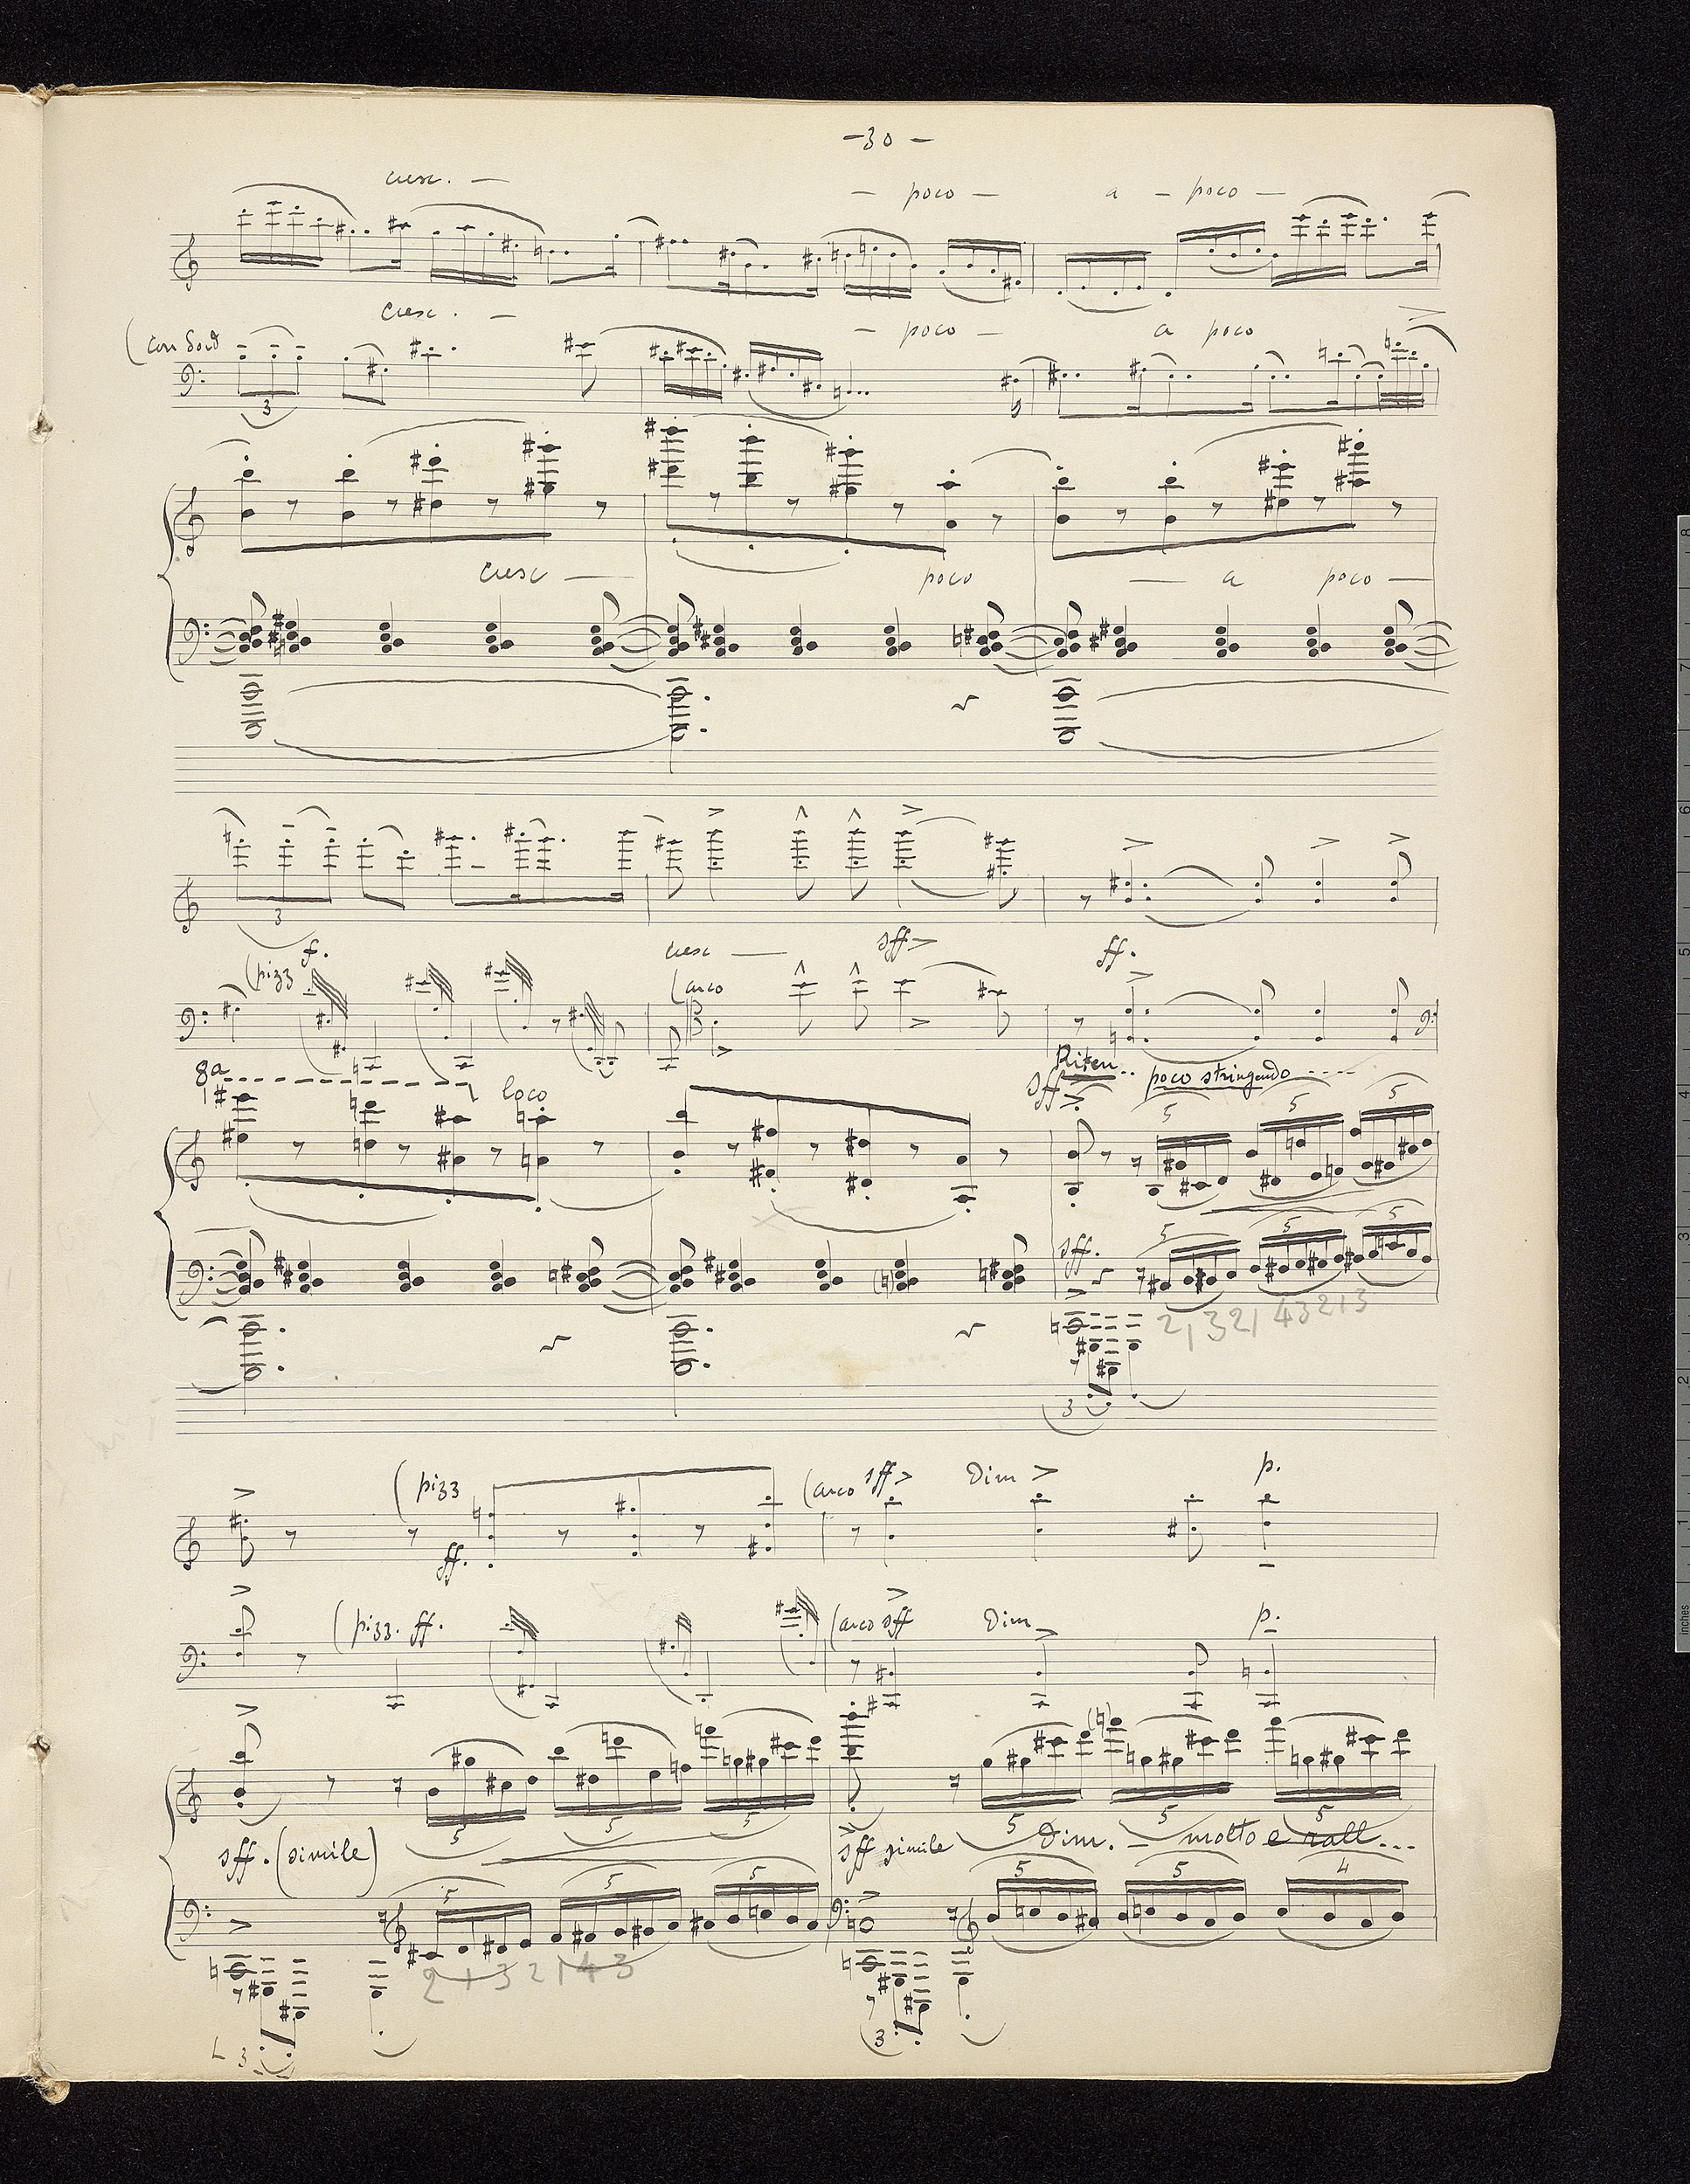 -30-
cresc. — — poco — a — poco —
cresc. — — poco — a poco
(con sord
3
cresc — poco — a poco —
3
f.
cresc — sff> ff.
(pizz
(arco
Riten..
8a loco
sff> poco stringendo ----
5 5 5
sff.
5 5 5
2 1 3 2 1 4 3 2 1 3
3
(pizz (arco sff> Dim > p.
ff.
(pizz. ff. (arco sff Dim p.
5 5 5 5 5 5
sff. (simile) sff simile Dim. — molto e rall...
5 5 5 5 5 4
2 1 3 2 1 4 3
3 3
8
7
6
5
4
3
2
1
inches